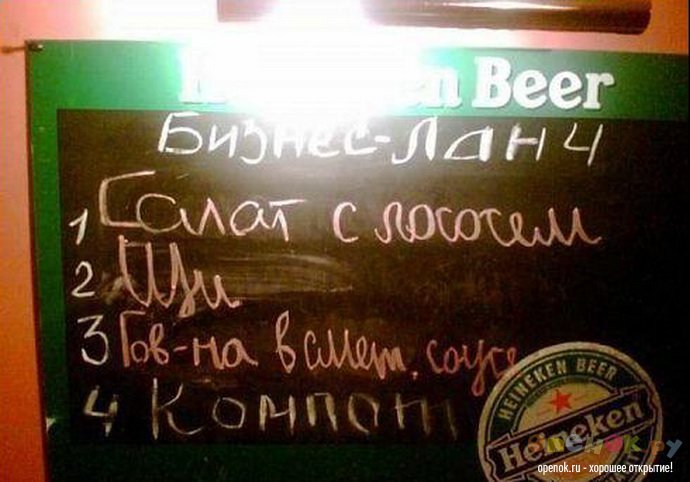 en Beer
Бизнес-Ланч
1 Салат с лососем
2 Щи
3 Гов-на в смет. соусе
4 Компот
HEINEKEN BEER
Heineken
openok.ru - хорошее открытие!